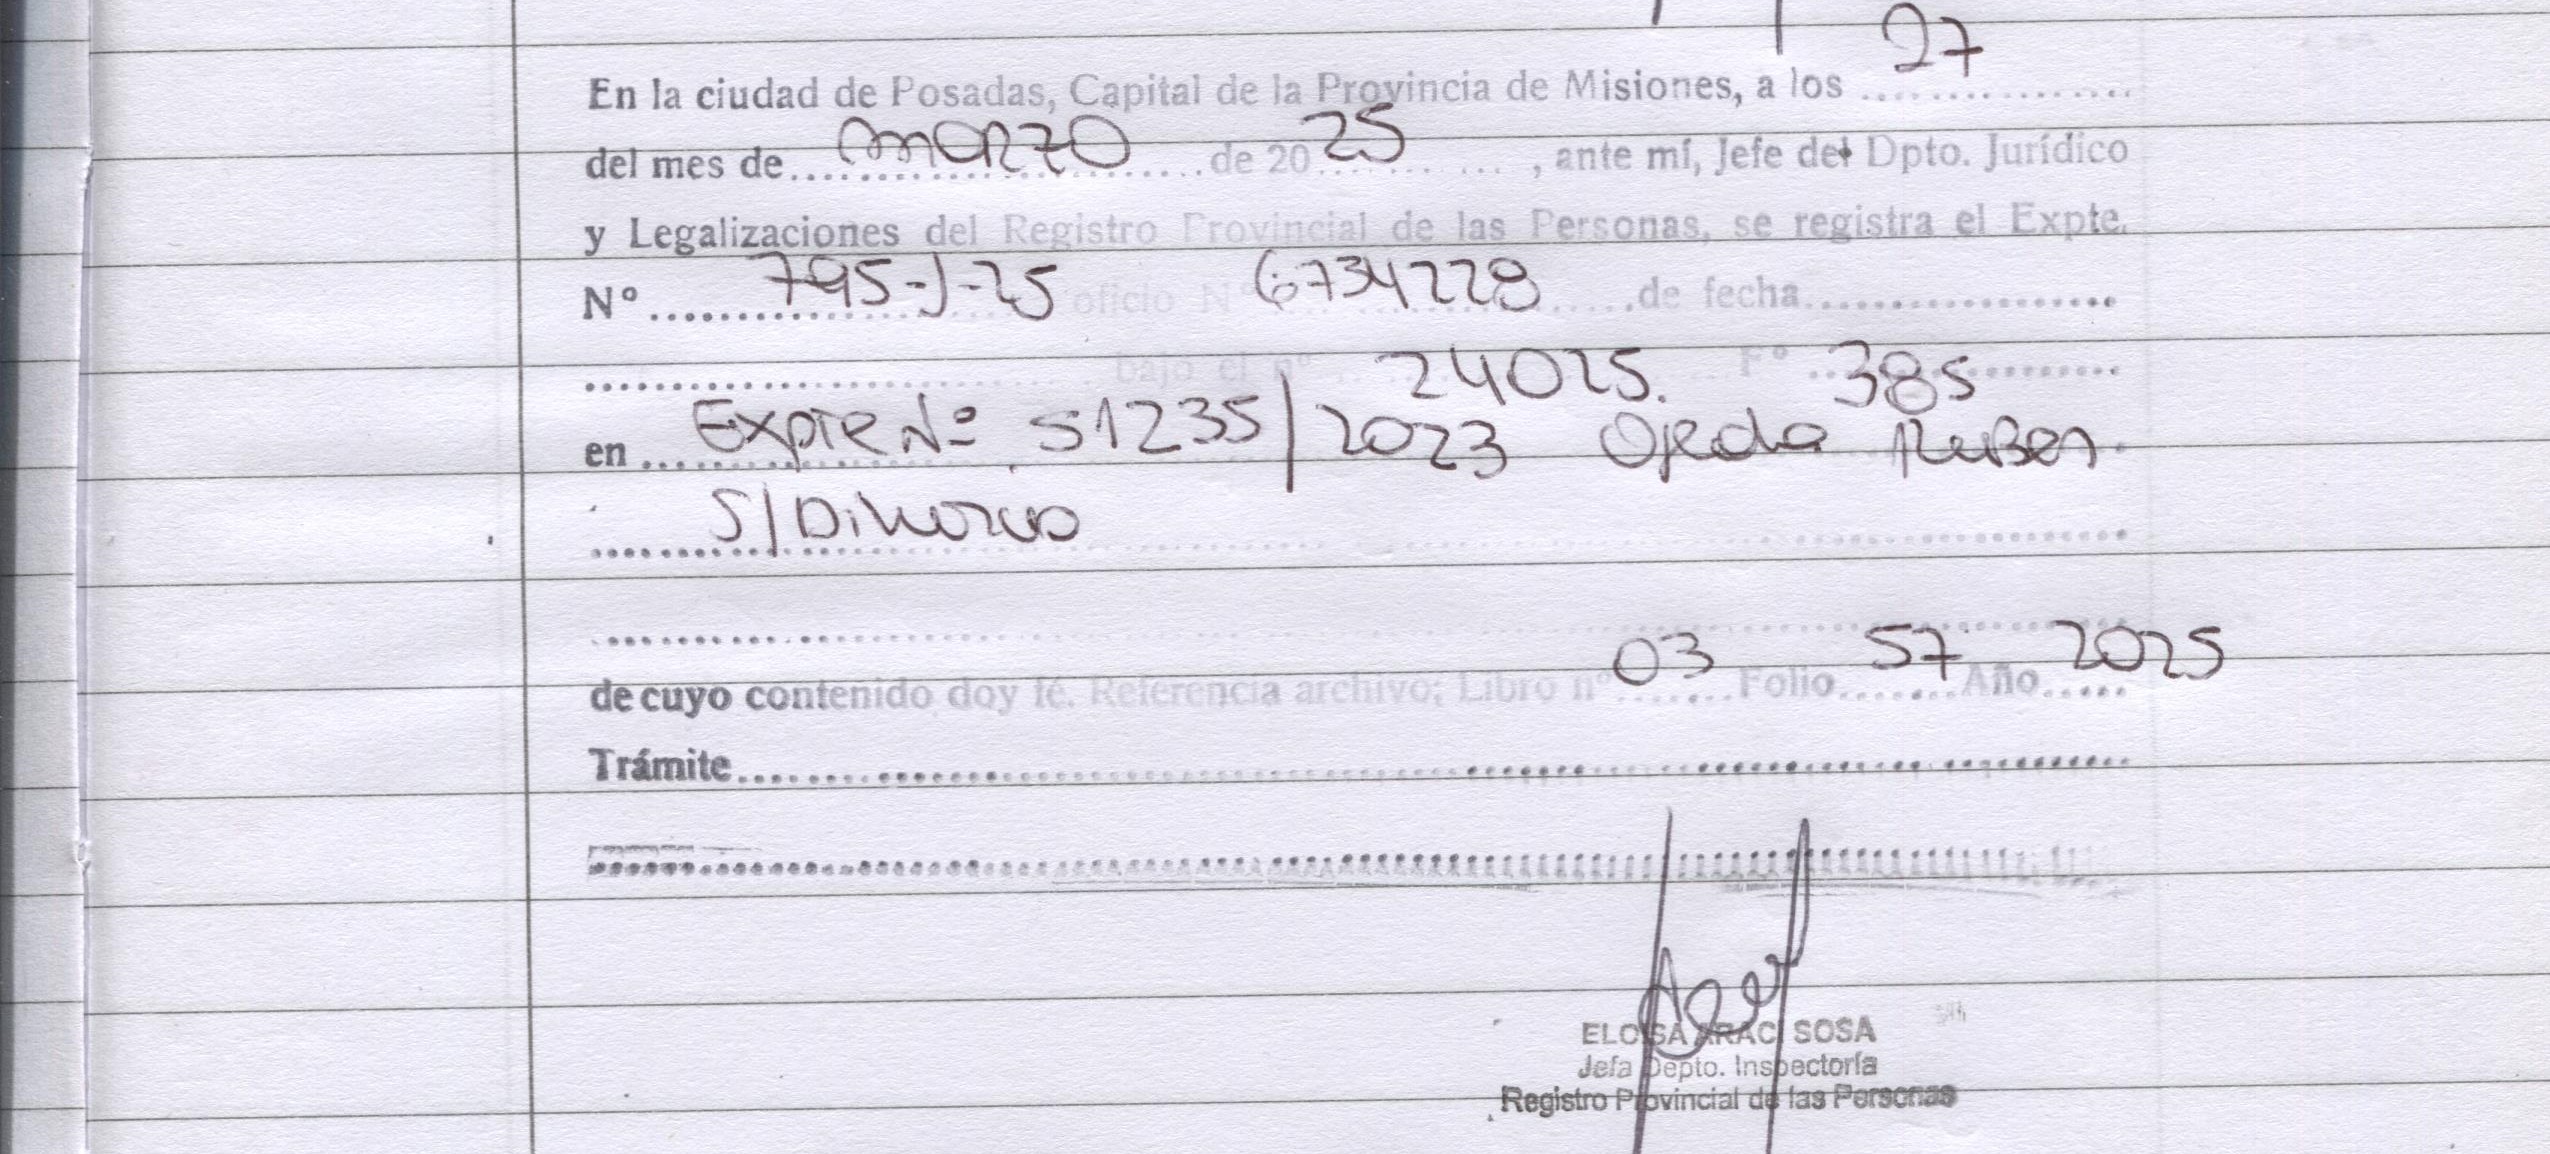 En la ciudad de Posadas, Capital de la Provincia de Misiones, a los 27
del mes de marzo de 20 25, ante mí, Jefe del Dpto. Jurídico
y Legalizaciones del Registro Provincial de las Personas, se registra el Expte.
Nº 795-J-25 oficio Nº 6734228 de fecha
bajo el nº 24025. Fº 385
en Expte Nº 51235/2023 Ojeda Ruben
S/Divorcio
de cuyo contenido doy fé. Referencia archivo; Libro nº 03 Folio 57 Año 2025
Trámite
ELOISA ARACI SOSA
Jefa Depto. Inspectoría
Registro Provincial de las Personas